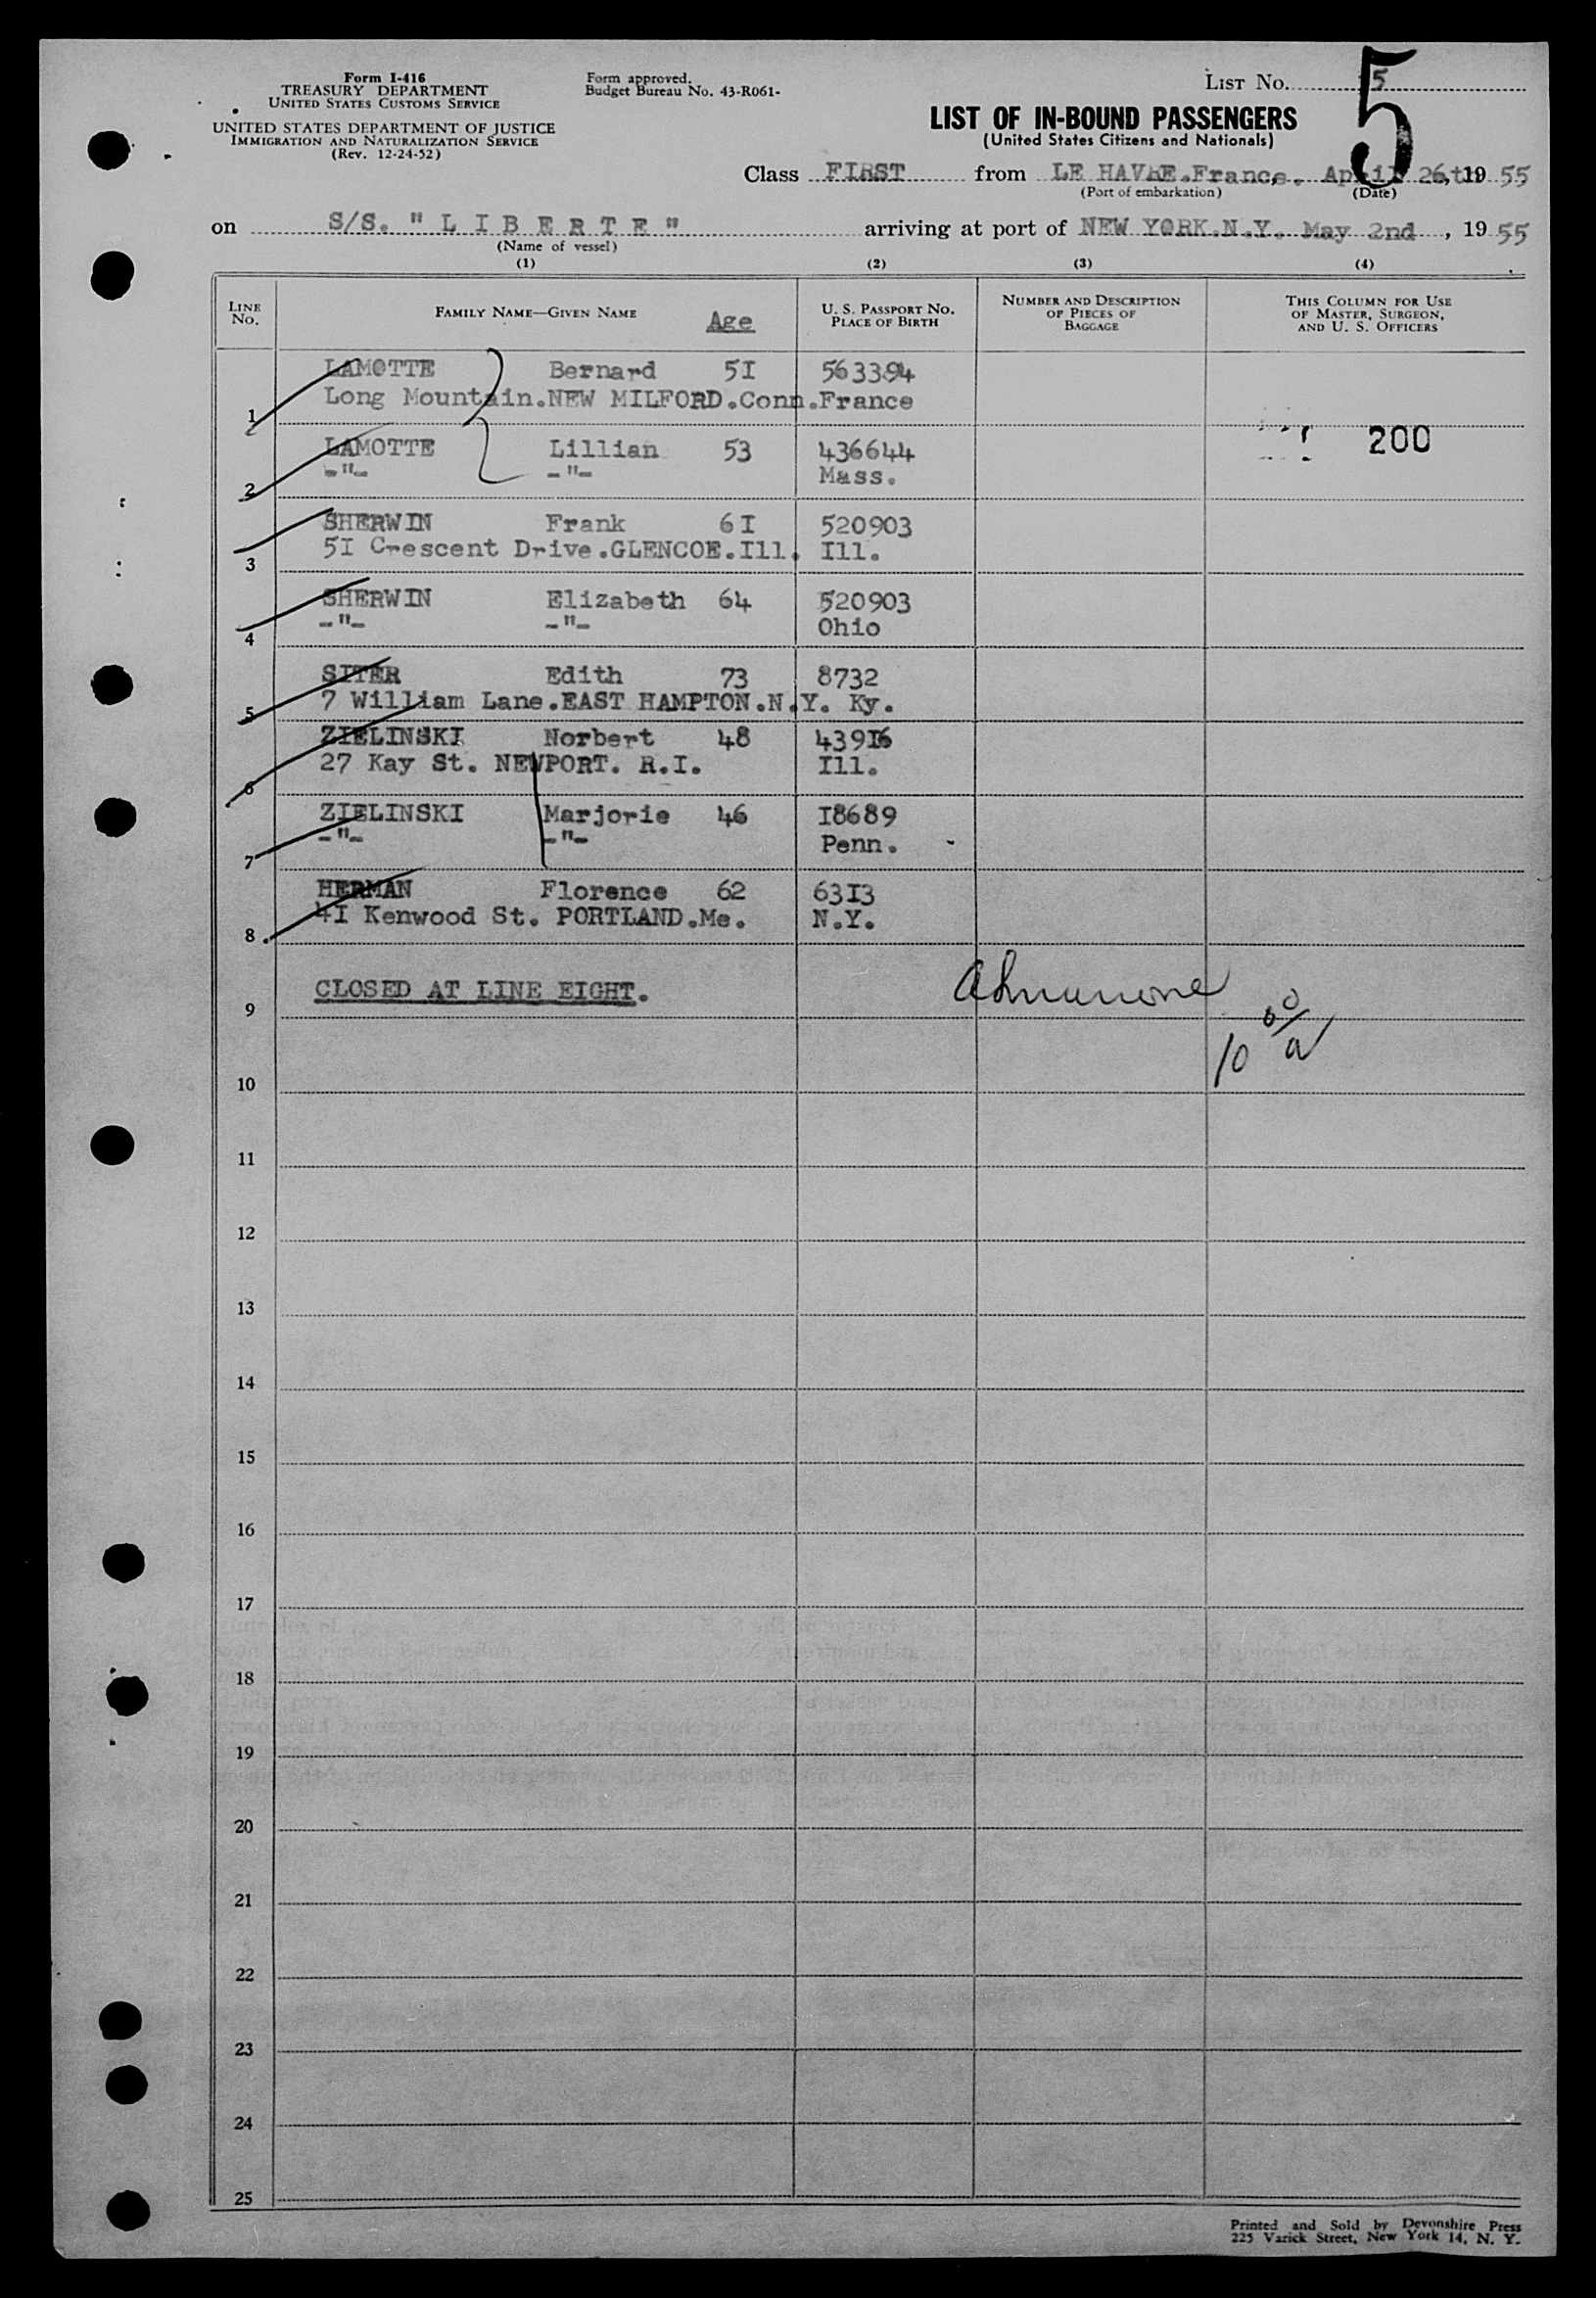 Form I-416
TREASURY DEPARTMENT
UNITED STATES CUSTOMS SERVICE
UNITED STATES DEPARTMENT OF JUSTICE
IMMIGRATION AND NATURALIZATION SERVICE
(Rev. 12-24-52)
Form approved.
Budget Bureau No. 43-R061-
LIST No. 5
5
LIST OF IN-BOUND PASSENGERS
(United States Citizens and Nationals)
Class FIRST from LE HAVRE.France. April 26th, 1955
(Port of embarkation) (Date)
on S/S. " L I B E R T E " arriving at port of NEW YORK.N.Y. May 2nd, 1955
(Name of vessel)
(1) (2) (3) (4)
LINE No. FAMILY NAME—GIVEN NAME Age U. S. PASSPORT NO. PLACE OF BIRTH NUMBER AND DESCRIPTION OF PIECES OF BAGGAGE THIS COLUMN FOR USE OF MASTER, SURGEON, AND U. S. OFFICERS
LAMOTTE Bernard 5I 563394
1 Long Mountain.NEW MILFORD.Conn.France
200
LAMOTTE Lillian 53 436644
2 -"- -"- Mass.
SHERWIN Frank 6I 520903
3 5I Crescent Drive.GLENCOE.Ill. Ill.
SHERWIN Elizabeth 64 520903
4 -"- -"- Ohio
SITER Edith 73 8732
5 7 William Lane.EAST HAMPTON.N.Y. Ky.
ZIELINSKI Norbert 48 439I6
6 27 Kay St. NEWPORT. R.I. Ill.
ZIELINSKI Marjorie 46 I8689
7 -"- -"- Penn.
HERMAN Florence 62 63I3
8 4I Kenwood St. PORTLAND.Me. N.Y.
9 CLOSED AT LINE EIGHT.
10
11
12
13
14
15
16
17
18
19
20
21
22
23
24
25
Printed and Sold by Devonshire Press
225 Varick Street, New York 14, N. Y.